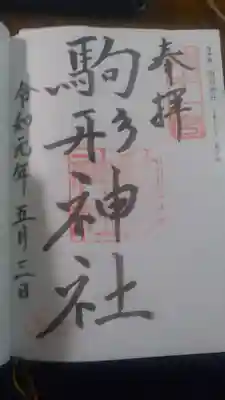 奉拝
駒形神社
令和元年五月三日